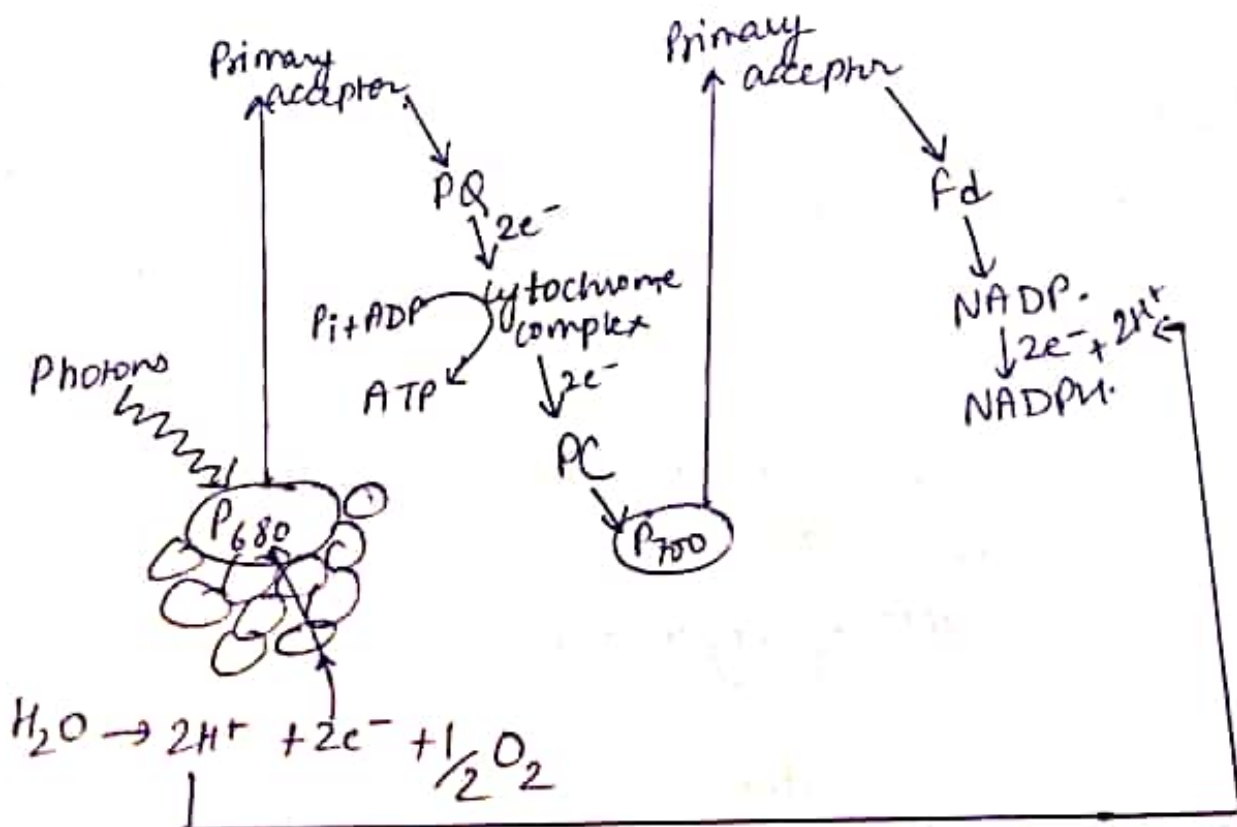 Primary
acceptor
PQ
2e⁻
Pi+ADP
Cytochrome
complex
ATP
2e⁻
PC
Photons
P680
P700
Primary
acceptor
Fd
NADP.
2e⁻ + 2H⁺
NADPH.
H₂O → 2H⁺ + 2e⁻ + 1/2 O₂